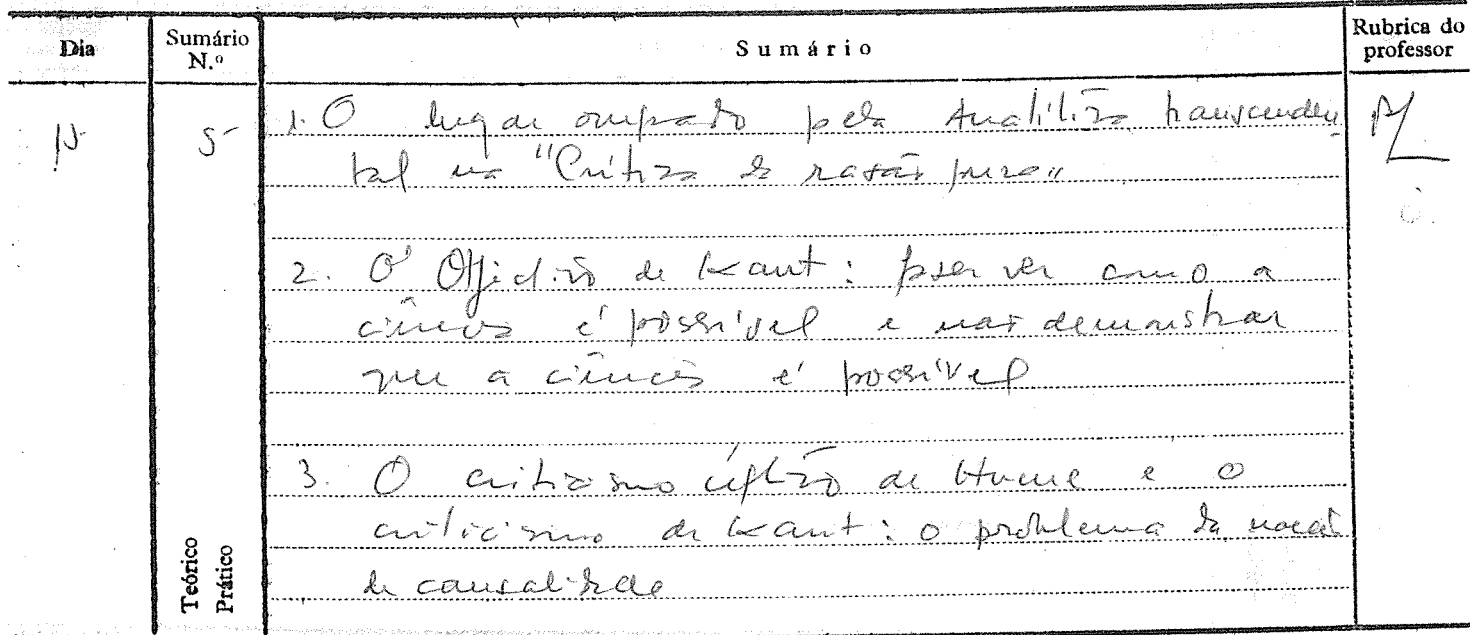 Dia
Sumário N.º
Sumário
Rubrica do professor
15
5
1. O lugar ocupado pela Analítica transcenden
tal na "Crítica da razão pura"
2. O Objectivo de Kant: fazer ver como a
ciência é possível e não demonstrar
que a ciência é possível
3. O criticismo céptico de Hume e o
criticismo de Kant: o problema da noção
de causalidade
Teórico
Prático